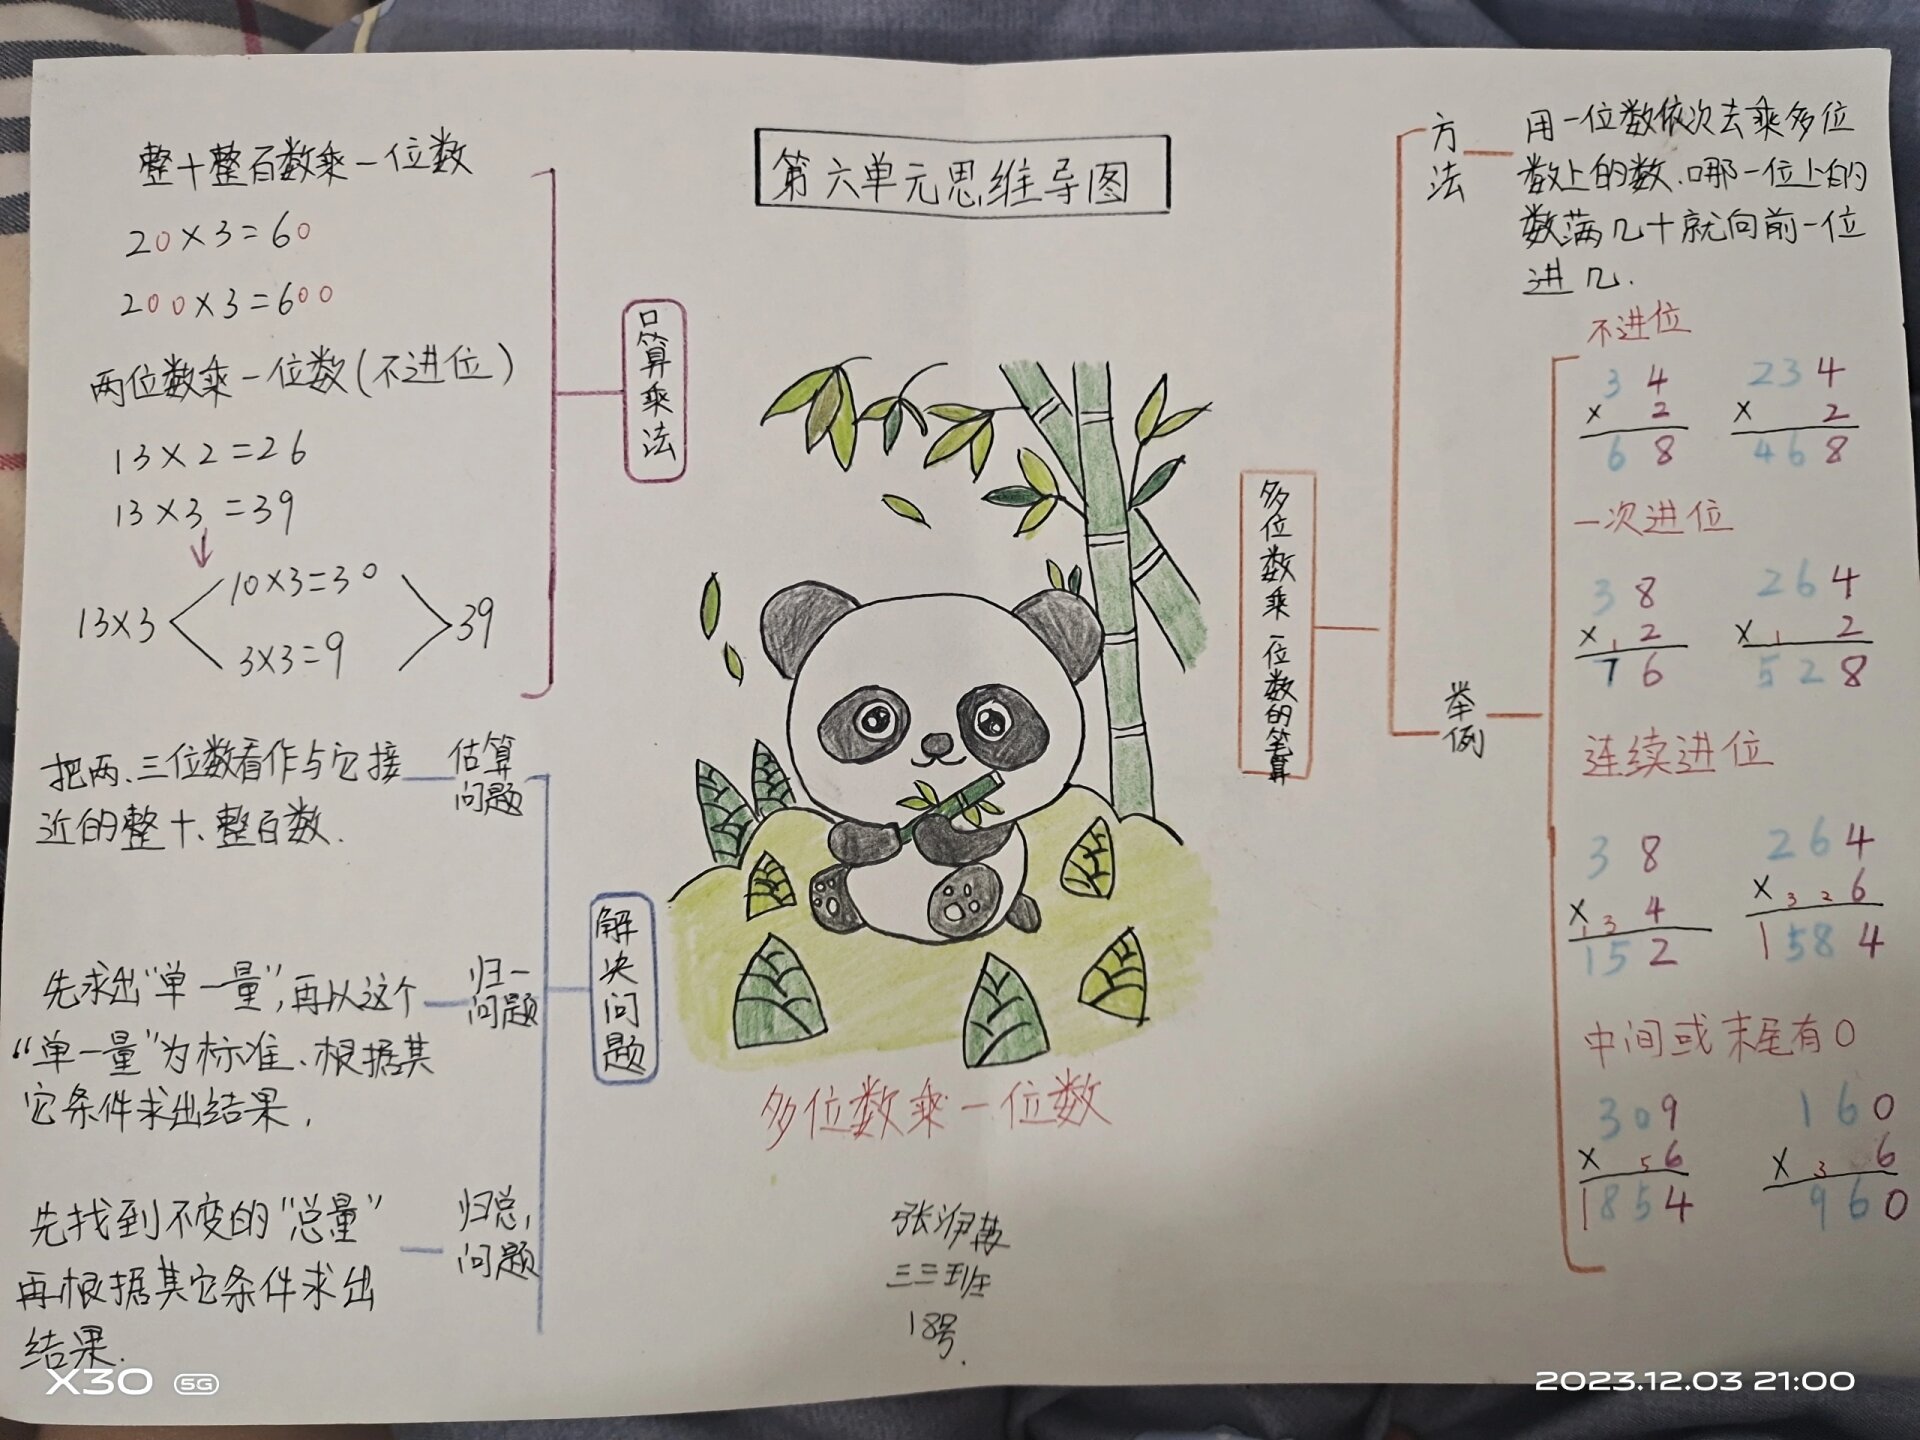 第六单元思维导图
整十整百数乘一位数
20×3=60
200×3=600
两位数乘一位数(不进位)
13×2=26
13×3=39
13×3
10×3=30
3×3=9
39
口算乘法
把两、三位数看作与它接
近的整十、整百数.
估算
问题
先求出“单一量”,再以这个
“单一量”为标准、根据其
它条件求出结果.
归一
问题
先找到不变的“总量”
再根据其它条件求出
结果.
归总,
问题
解决问题
多位数乘一位数
三三班
18号.
多位数乘一位数的笔算
方法
用一位数依次去乘多位
数上的数.哪一位上的
数满几十就向前一位
进几.
举例
不进位
34 234
× 2 × 2
68 468
一次进位
38 264
×1 2 ×1 2
76 528
连续进位
38 264
×1 3 4 ×3 2 6
152 1584
中间或末尾有0
309 160
× 5 6 ×3 6
1854 960
X30 5G
2023.12.03 21:00